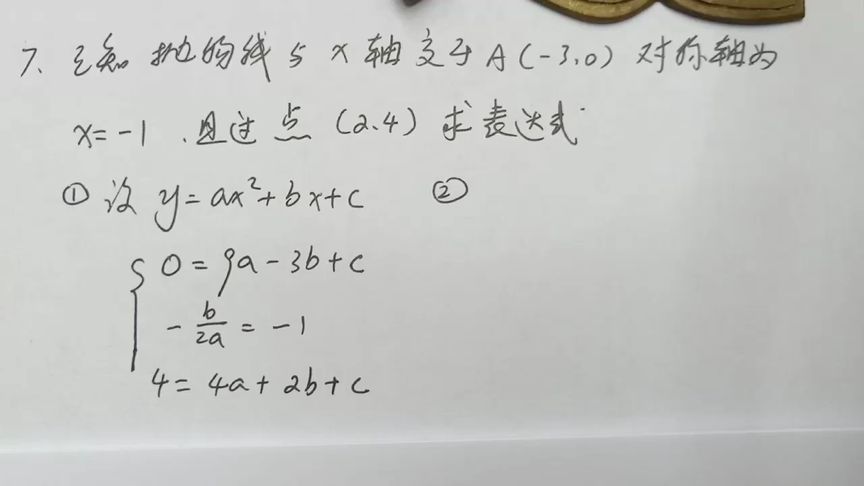 7、已知抛物线与x轴交于A(-3,0)对称轴为
x=-1.且过点(2,4)求表达式
①设 y=ax²+bx+c ②
0=9a-3b+c
-b/2a=-1
4=4a+2b+c